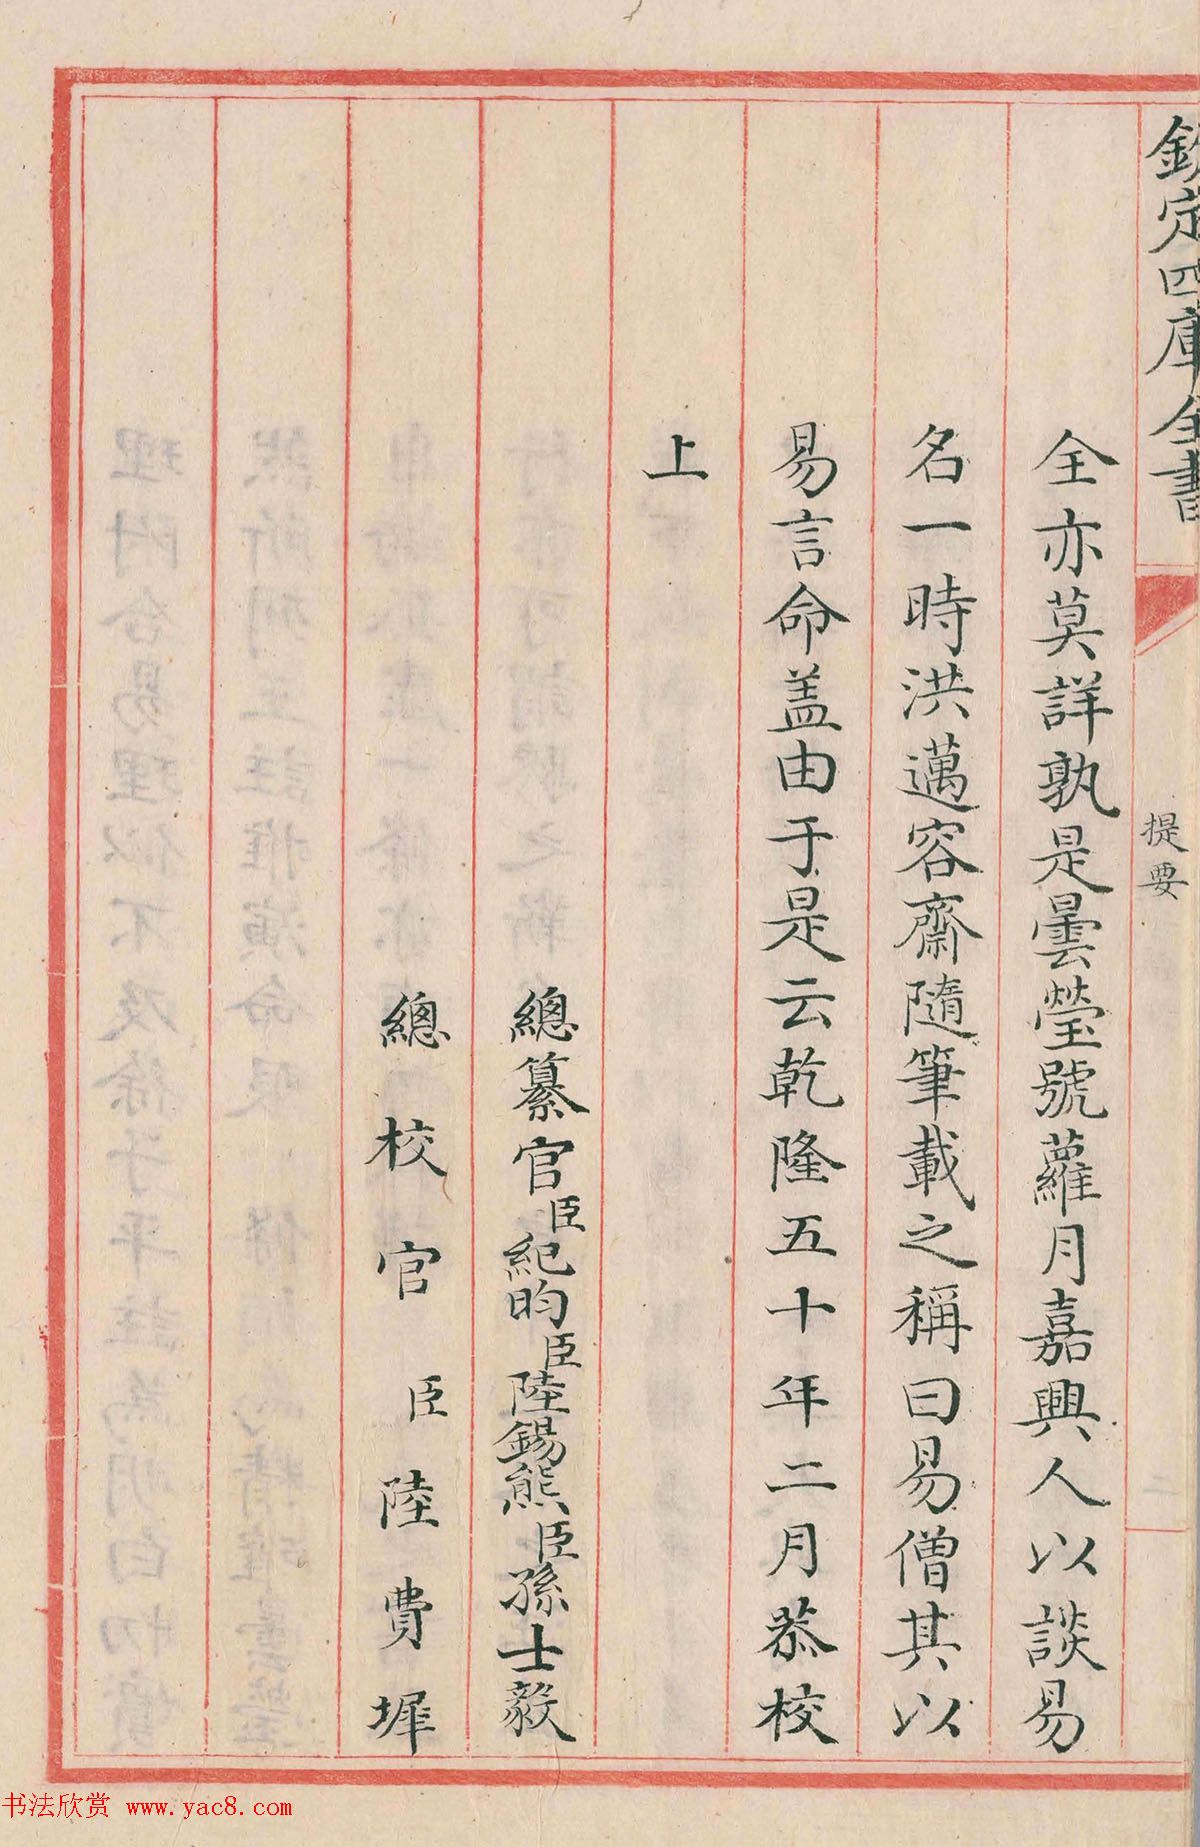 欽定四庫全書
提要
二
全亦莫詳孰是曇瑩號蘿月嘉興人以談易
名一時洪邁容齋隨筆載之稱曰易僧其以
易言命蓋由于是云乾隆五十年二月恭校
上
總纂官臣紀昀臣陸錫熊臣孫士毅
總校官臣陸費墀
书法欣赏 www.yac8.com